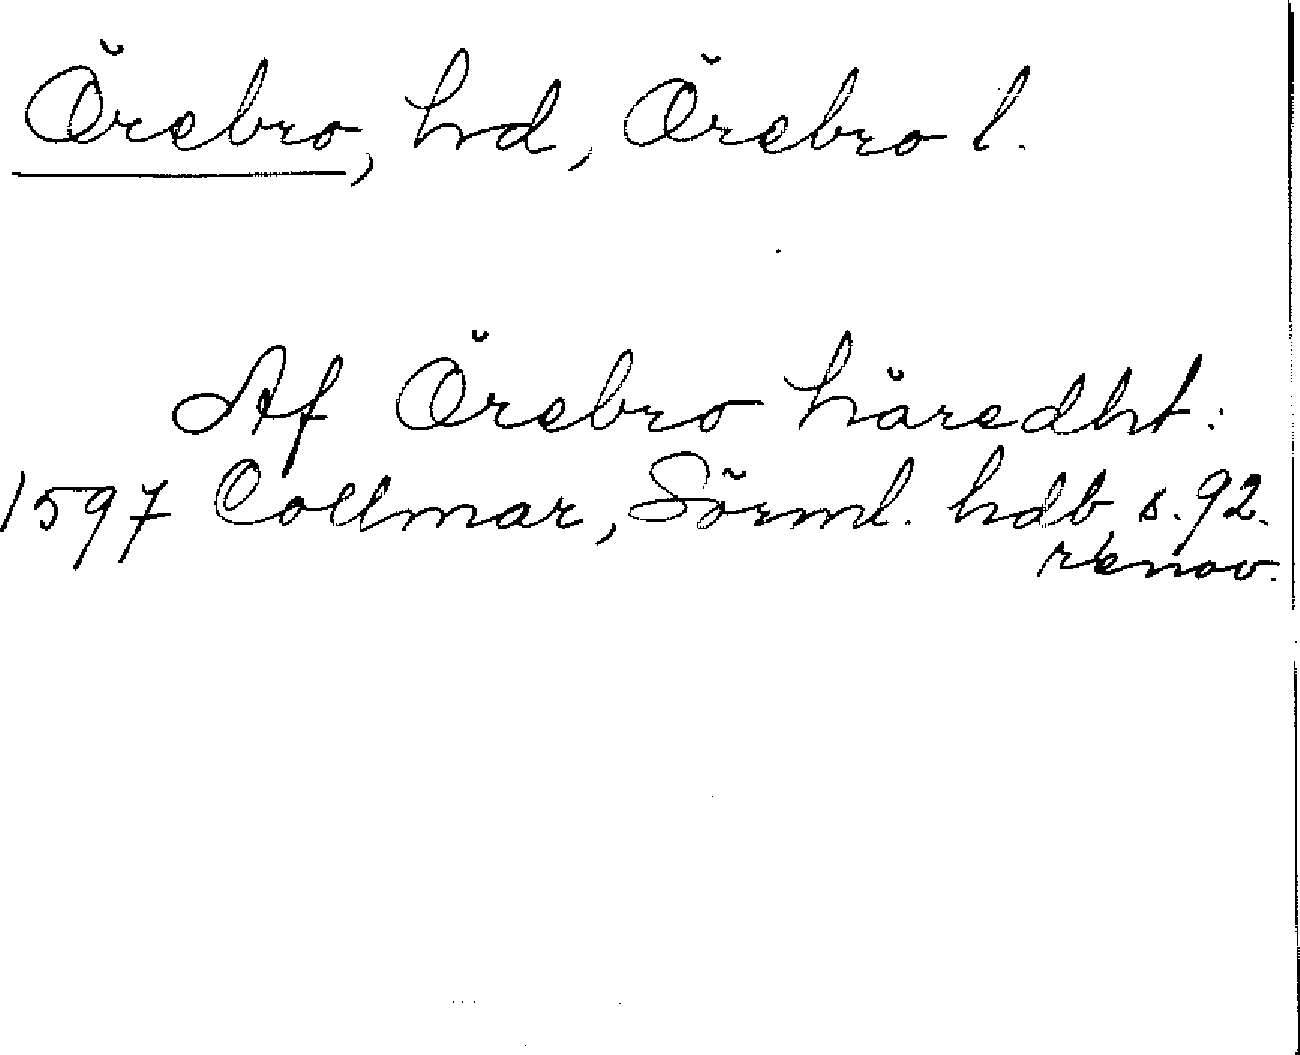 Örebro, hd, Örebro l.
Af Örebro häredht:
1597 Collmar, Sörml. hdb s. 92.
renov.